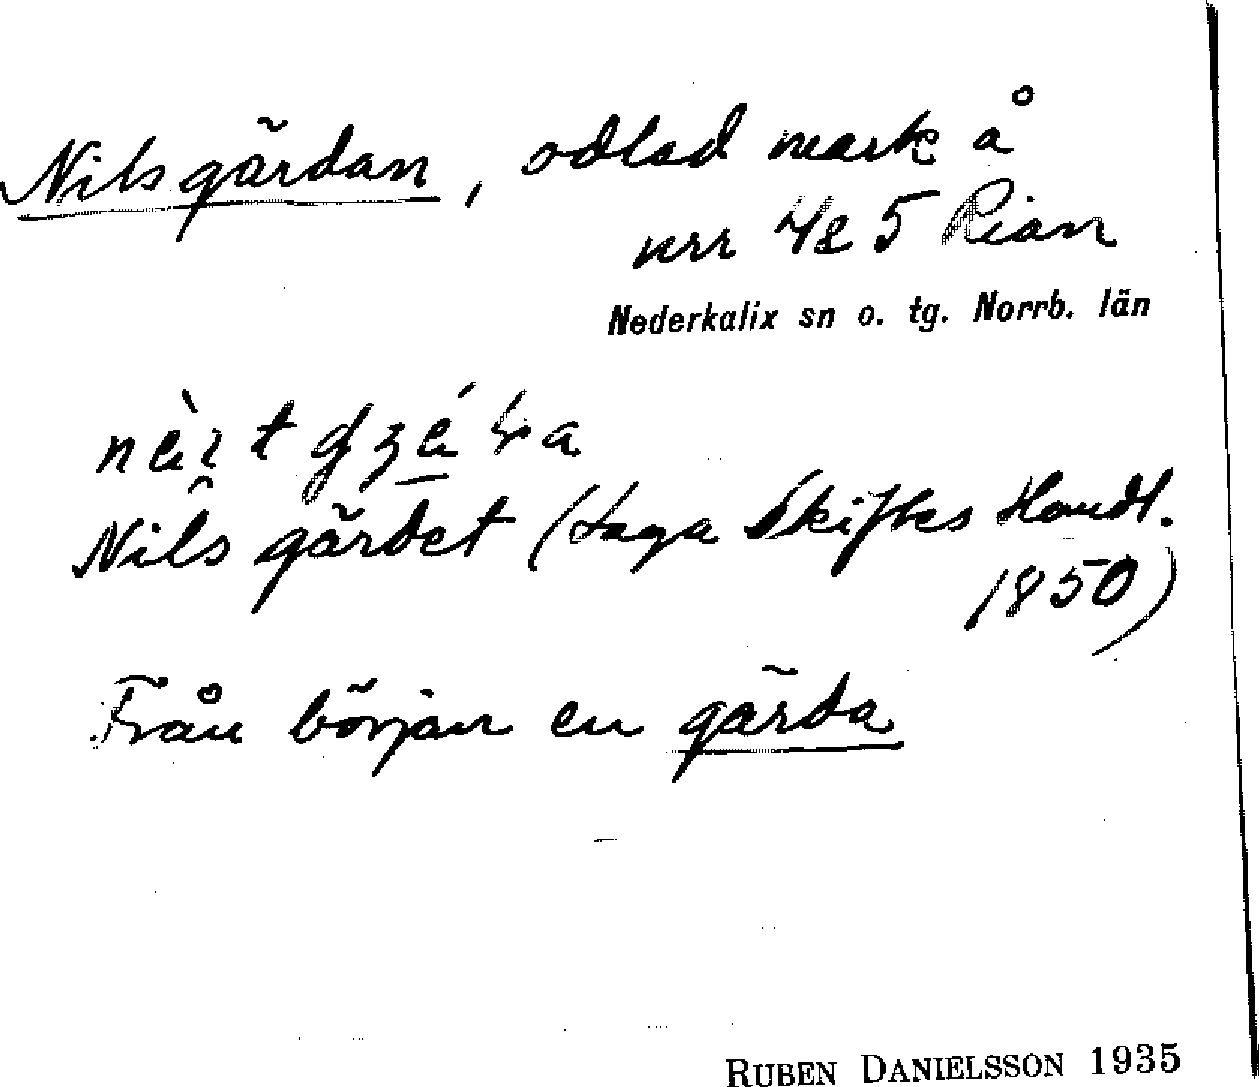 Nilsgärdan, odlad mark å
nrr 4 & 5 Rian
Nederkalix sn o. tg. Norrb. län
Nils gärdet (Laga Skiftes Handl.
1850)
Från början en gärda
RUBEN DANIELSSON 1935